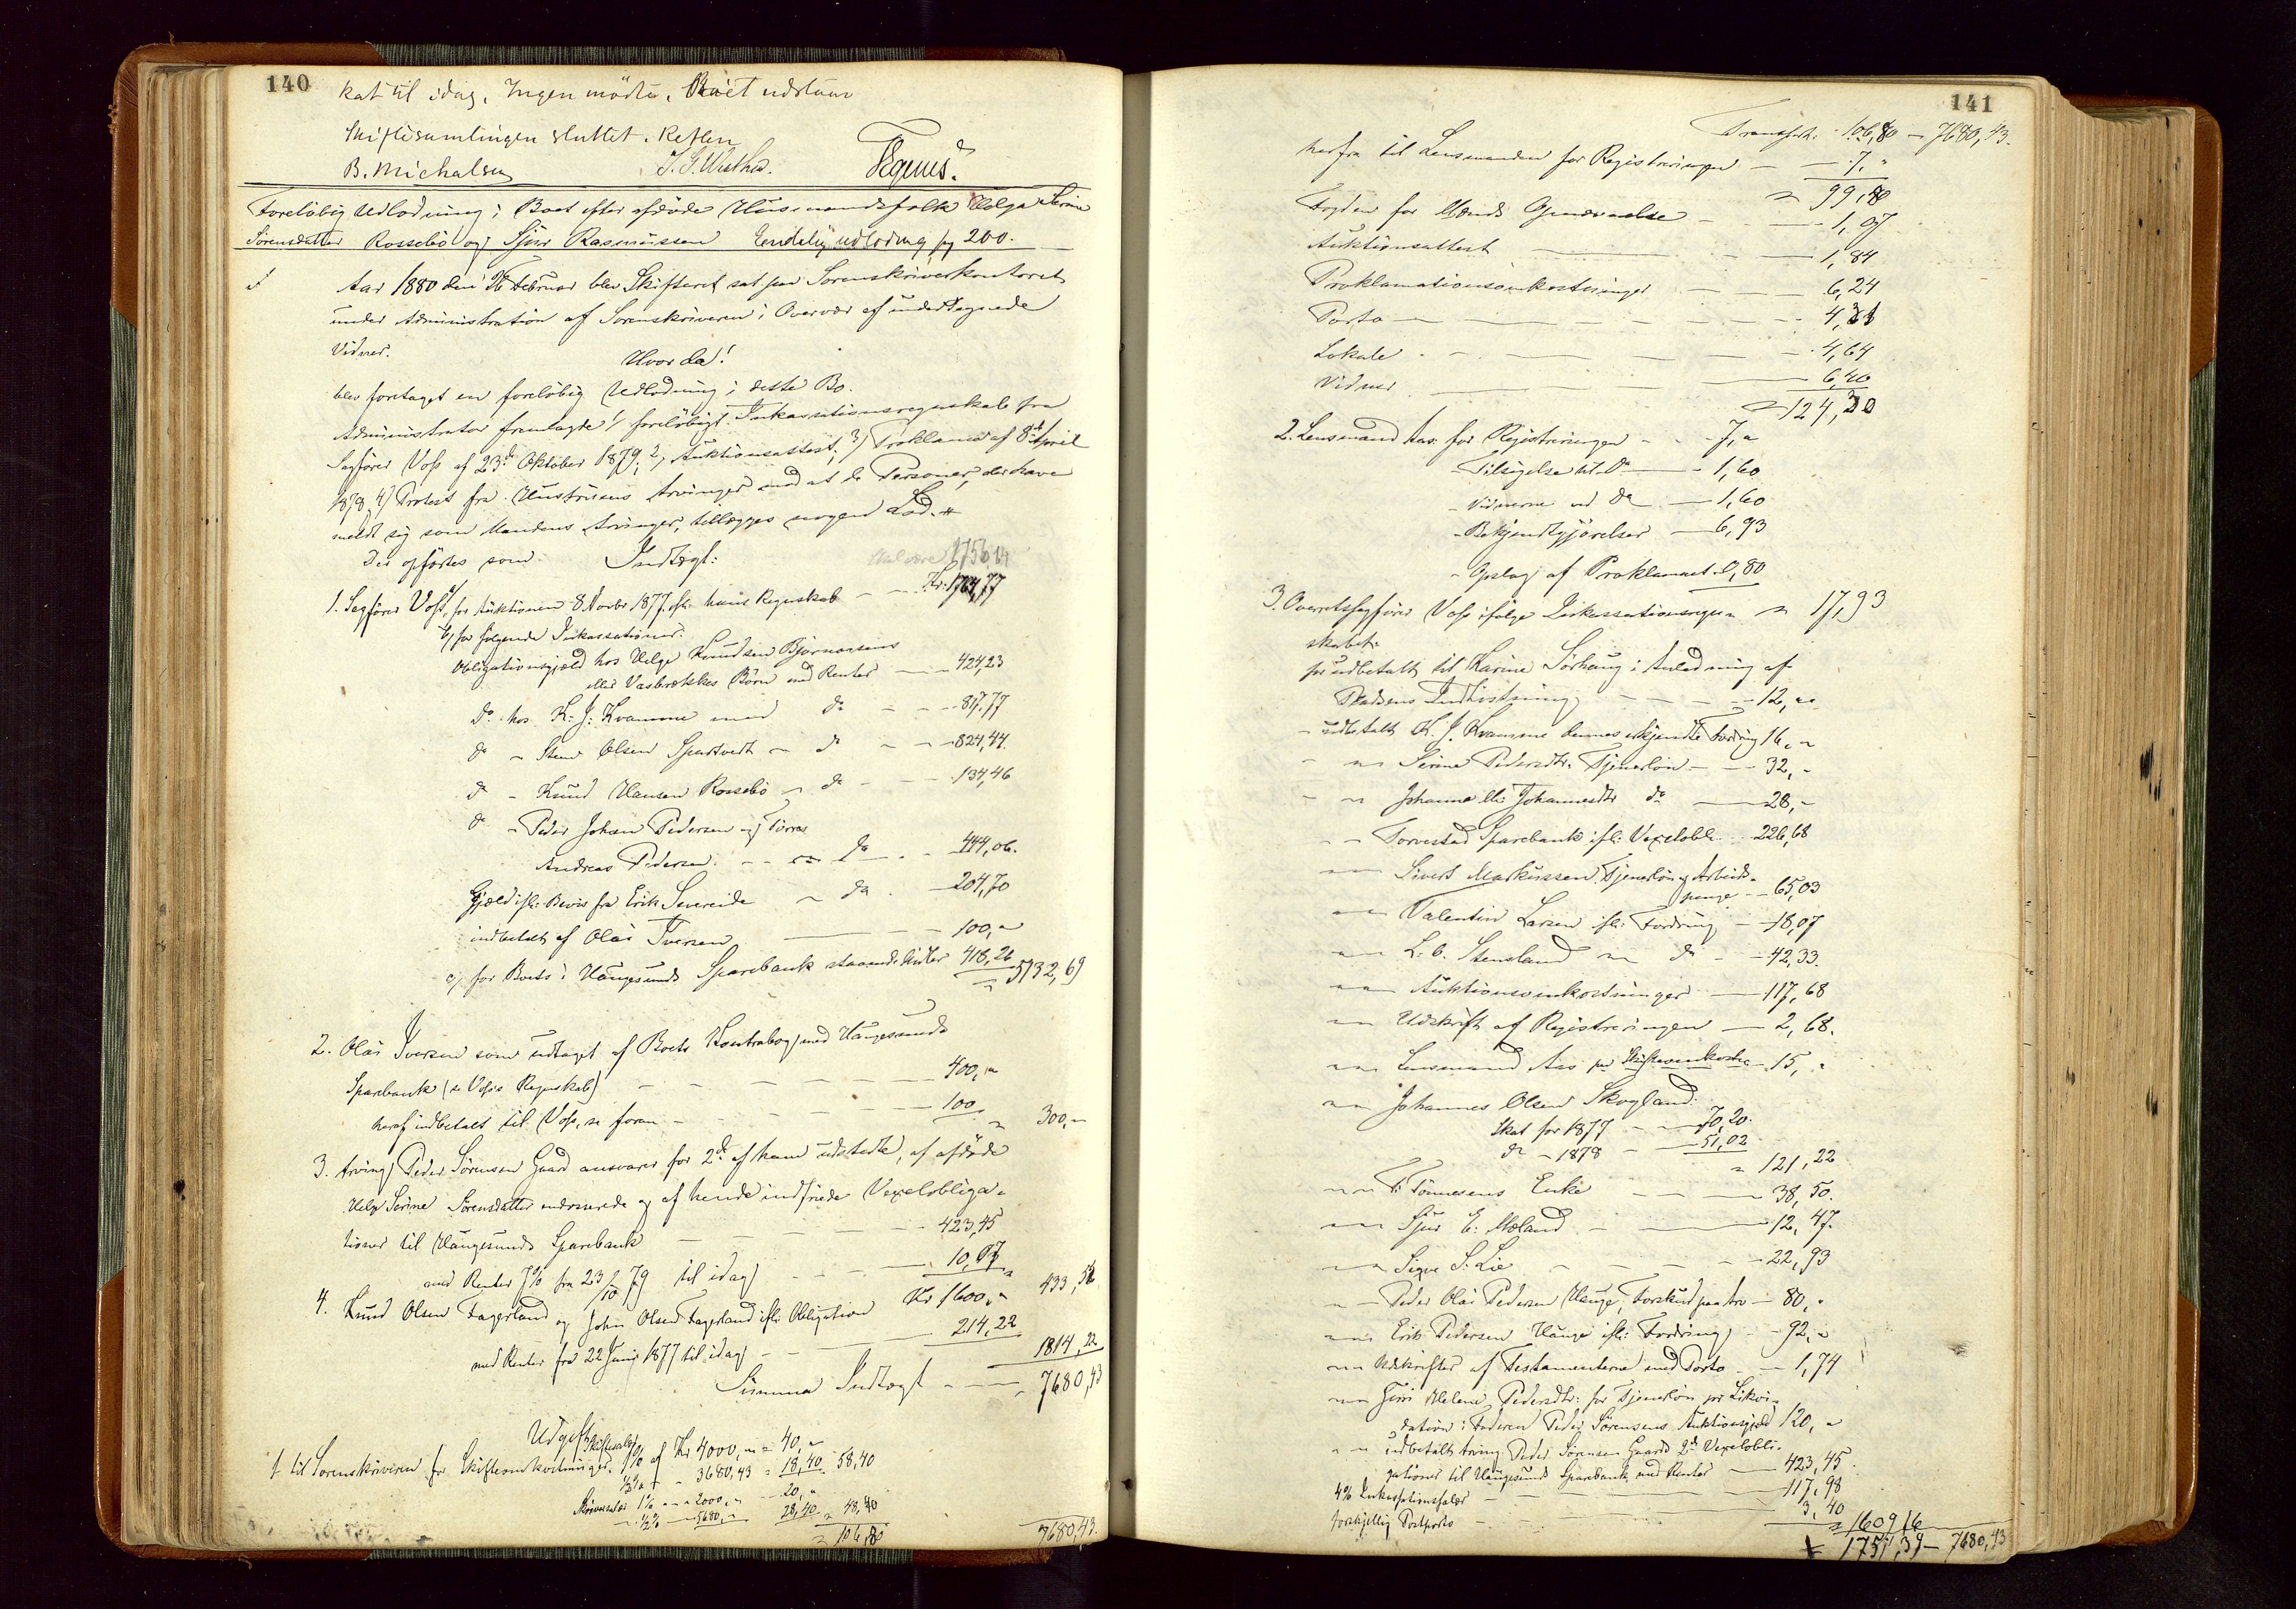 140
kat til idag. Ingen mödte. Boet udstaar
Skiftesamlingen sluttet. Retten
B. Michalsen J. S. Wathne. Tegnes.
Foreløbig Udlodning i Boet efter afdøde Husmandsfolk Helga Serine
Sørensdatter Rossebö og Sjur Rasmussen Eendelig udlodning pg 200.
Aar 1880 den 26 Februar blev Skifteret sat paa Sorenskriverkontoret
under Administration af Sorenskriveren i Overvær af undertegnede
Vidner.
Hvor da!
blev foretaget en foreløbig Udlodning i dette Bo.
Administrator fremlagde 1) foreløbigt Inkassationsregnskab fra
Sagfører Voss af 23de Oktober 1879; 2) Auktionsattest; 3) Proklama af 8de April
1878 4) Protest fra Hustruens Arvinger mod at de Personer, der have
meldt sig som Mandens Arvinger, tillægges nogen Lod.
Der opførtes som Indtægt:
Skal være 1756,14
1. Sagfører Voss, a) for Auktionen 8 Novbr 1877 ifl. hans Regnskab - - Kr. 1764,77
b) for følgende Inkassationer:
Obligationsgjæld hos Helge Knudsen Bjørnaasens
eller Vasbrækkes Börn med Renter - - 424,23
do hos K. J. Kvamme med do - - - 817,77
do - Sten Olsen Spartvedt - do - - - 824,44
do - Knud Hansen Rossebö - do - - - 134,46
do - Peder Johan Pedersen og Torres
Andreas Pedersen - - do - - 444,06.
Gjæld ifl. Bevis fra Erik Sævereide - do - 204,70
indbetalt af Olai Iversen - - 100,-
c) for Boets i Haugesunds Sparebank staaende Midler 418,26
5132,69
2. Olai Iversen som udtaget af Boets Kontrabog med Haugesunds
Sparebank (se Voss's Regnskab) - - - - 400,-
heraf indbetalt til Voss, se foran - - - - 100,- 300,-
3. Arving Peder Sørensen Gaard ansvarer for 2de af ham udstedte, af afdøde
Helga Serine Sørensdatter endosserede og af hende indfriede Vexelobliga-
tioner til Haugesunds Sparebank - - - - 423,45
med Renter 7% fra 23/10 79 til idag - - - 10,07 433,52
4. Knud Olsen Fagerland og John Olsen Fagerland ifl. Obligation Kr 1600,-
med Renter fra 22 Juni 1877 til idag - - 214,22 1814,22
Summa Indtægt - - - 7680,43
Udgift:
1. til Sorenskriveren for Skifteomkostninger: Skiftesalær 1% af Kr 4000,- = 40,-
½% - - 3680,43 = 18,40 58,40
Skriversalær 1% - - 2000,- - 20,-
- ½% - 5680,- 28,40 48,40
106,80 7680,43.
141
Transport: 106,80 - 7680,43.
herfra til Lensmanden for Registreringen - - 7,-
99,80
Fogden for Mænds Opnævnelse - - - 1,07
Auktionsattest - - 1,84
Proklamationsomkostninger - - - 6,24
Porto - - - - - - 4,31
Lokale - - - - 4,64
Vidner - - 6,40
124,30
2. Lensmand Aas for Registreringen - - 7,-
- Tilsigelse til do - - 1,60
- Vidnerne ved do - 1,60
- Bekjendtgjørelser - 6,93
- Opslag af Proklamaet 0,80
17,93
3. Overretssagfører Voss ifølge Inkassationsregn-
skabet:
for udbetalt til Karine Sørhaug i Anledning af
Mandens Indkistning - - - - 12,-
- udbetalt K. J. Kvamme dennes erkjendte Fordring 16,-
- - Serine Pedersdtr. Tjenerløn - - 32,-
- - Johanna Johannesdtr do - 28,-
- - Torvestad Sparebank ifl. Vexelobl. 226,68
- - Sivert Markussen Tjenerløn og Arbeids-
penge - 65,03
- - Valentin Larsen ifl. Fordring - 18,07
- - L. O. Stensland - do - 42,33.
- - Auktionsomkostninger - 117,68
- - Udskrift af Registreringen - 2,68.
- - Lensmand Aas for Skifteomkostn. - 15,-
- - Johannes Olsen Skogland:
Skat for 1877 - - 70,20.
do - 1878 - 51,02
121,22
- - T. Tønnesens Enke - - - 38,50.
- - Sjur E. Mæland - - 12,47.
- - Sigve S. Lie - - - 22,93
- - Peder Olai Pedersen Hauge, Forskud paa Arv - 80,-
- - Erik Pedersen Hauge ifl. Fordring - - 92,-
- - Udskrifter af Testamenterne med Porto - 1,74
- - Helene Pedersdtr. for Tjenerløn pr Likvi-
dation i Faderen Peder Sørensens Auktionsgjæld 120,-
- - indbetalt Arving Peder Sørensen Gaards 2de Vexelobli-
gationer til Haugesunds Sparebank med Renter - 423,45.
4% Inkassationssalær - - - 117,98
forskjellig Postporto - - - 3,40
1609,16
1751,39 - 7680,43